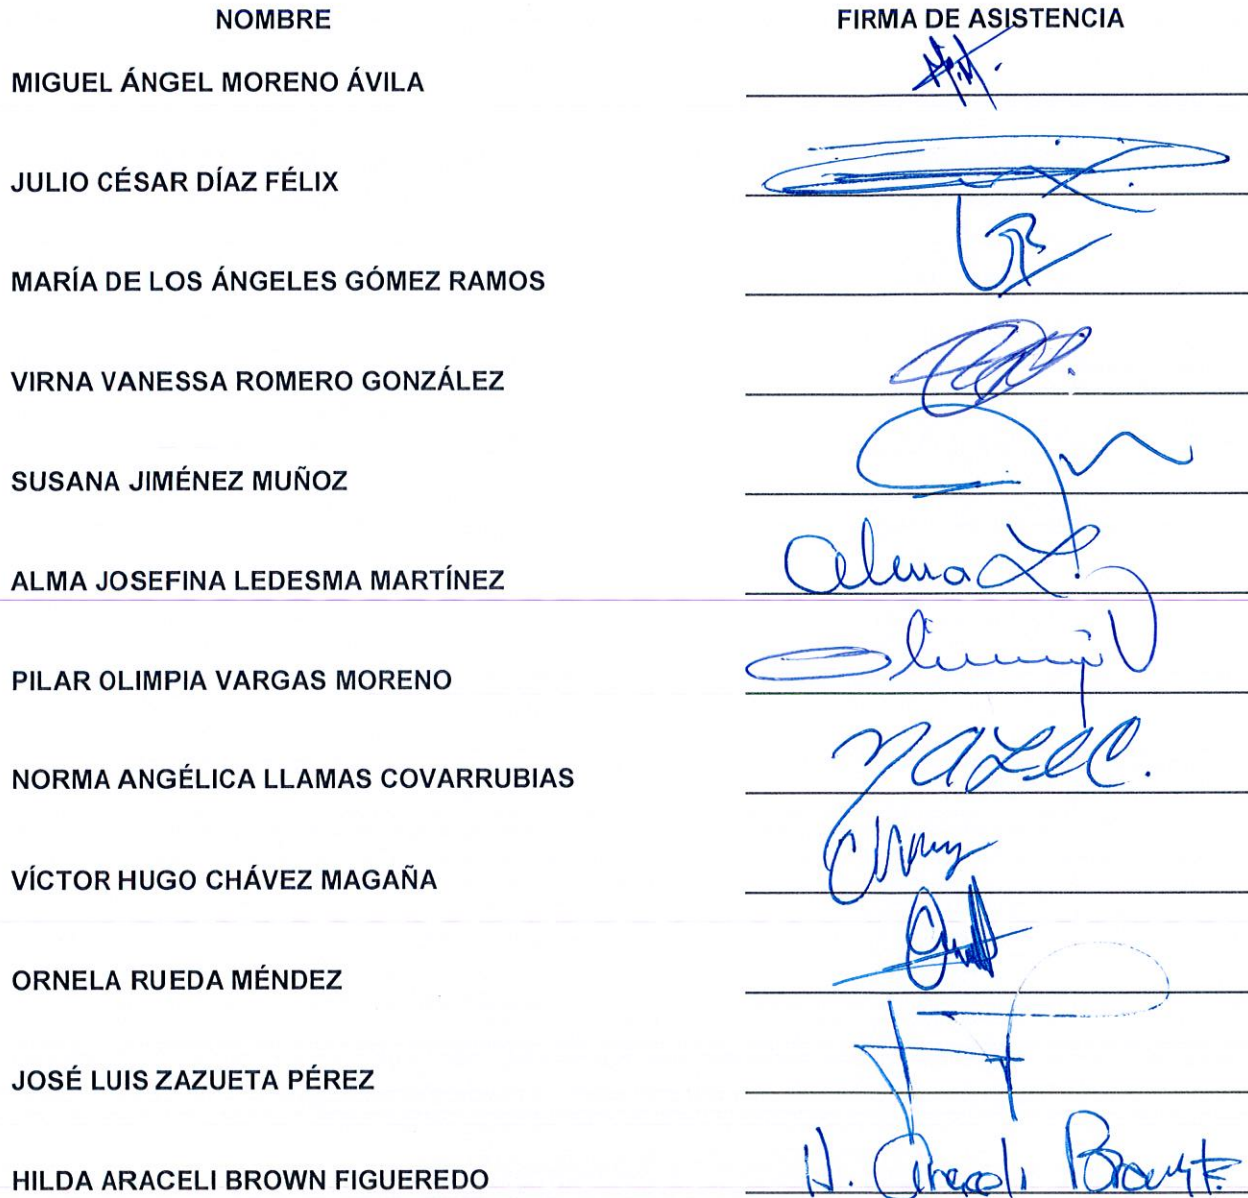 NOMBRE FIRMA DE ASISTENCIA
MIGUEL ÁNGEL MORENO ÁVILA
JULIO CÉSAR DÍAZ FÉLIX
MARÍA DE LOS ÁNGELES GÓMEZ RAMOS
VIRNA VANESSA ROMERO GONZÁLEZ
SUSANA JIMÉNEZ MUÑOZ
ALMA JOSEFINA LEDESMA MARTÍNEZ Alma L.
PILAR OLIMPIA VARGAS MORENO
NORMA ANGÉLICA LLAMAS COVARRUBIAS
VÍCTOR HUGO CHÁVEZ MAGAÑA
ORNELA RUEDA MÉNDEZ
JOSÉ LUIS ZAZUETA PÉREZ
HILDA ARACELI BROWN FIGUEREDO H. Araceli Brown F.